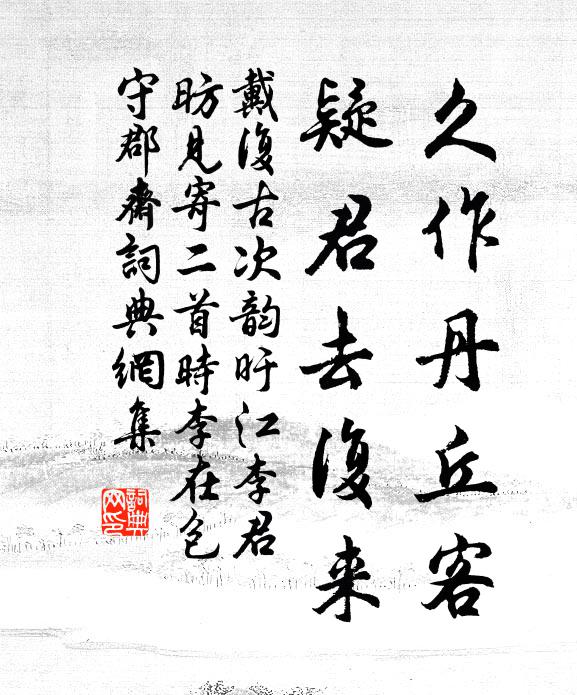 久作丹丘客
疑君去復来
戴復古次韵旴江李君
昉見寄二首時李在包
守郡齋詞典網集
詞典网印